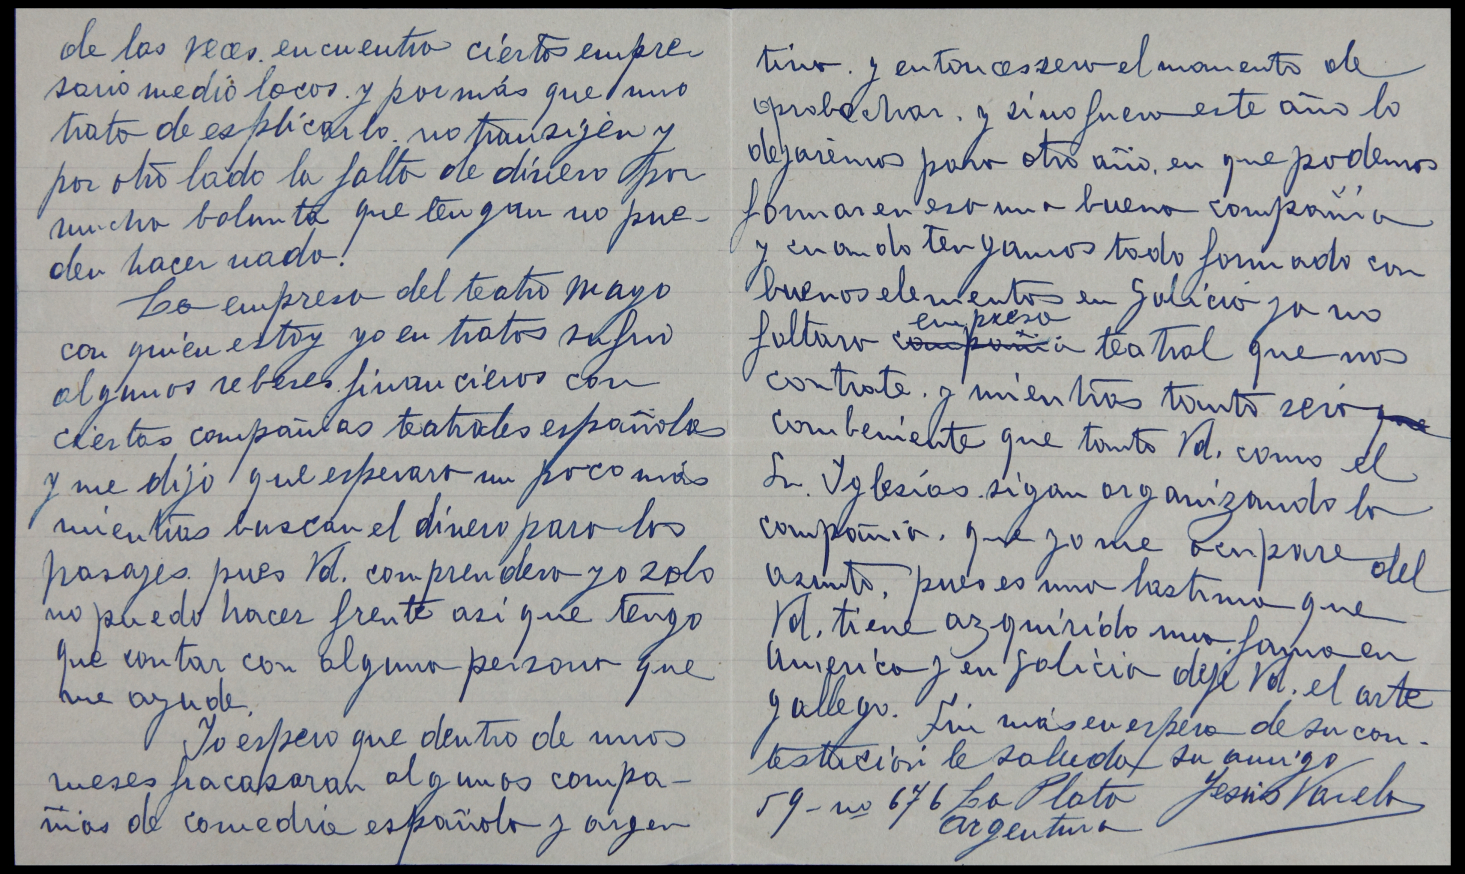 de las veces. encuentro ciertos empre-
sario medio locos. y por más que uno
trato de esplicarlo. no transigen y
por otro lado la falta de dinero por
mucha bolunta que tengan no pue-
den hacer nada.
La empresa del teatro Mayo
con quien estoy yo en tratos sufrio
algunos rebeses financieros con
ciertas compañias teatrales españolas
y me dijo que esperara un poco más
mientras buscan el dinero para los
pasajes. pues Vd. comprendera yo solo
no puedo hacer frente asi que tengo
que contar con alguna persona que
me ayude.
Yo espero que dentro de unos
meses fracasaran algunas compa-
ñias de comedria española y argen
tina. y entonces sera el momento de
aprobechar. y si no fuera este año lo
dejaremos para otro año. en que podemos
formar en esa una buena compañia
y cuando tengamos todo formado con
buenos elementos en Galicia ya no
empresa
faltara compañia teatral que nos
contrate. y mientras tanto será que
combeniente que tanto Vd. como el
Sr. Yglesias. sigan organizando la
compañia. que yo me ocupare del
asunto, pues es una lastima que
Vd. tiene azquirido una fama en
America y en Galicia deje Vd. el arte
gallego. Sin más en espera de su con-
testación le saluda su amigo
59 - no 676 La Plata Jesús Varela
Argentina